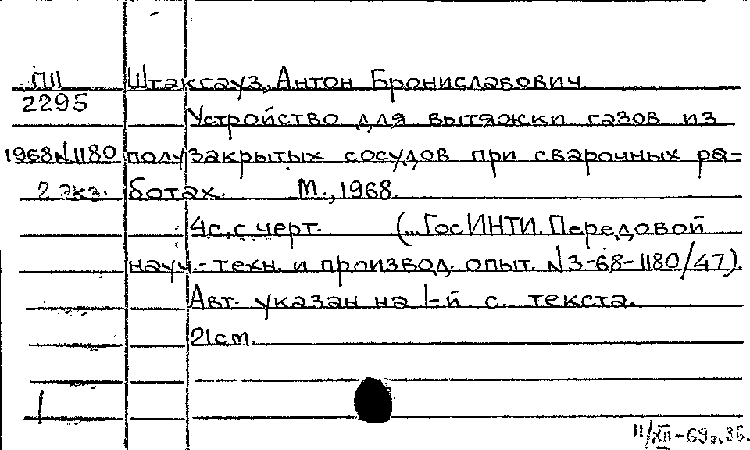 ПП Штаксауз, Антон Брониславович
2295 Устройство для вытяжки газов из
1968 N1180 полузакрытых сосудов при сварочных ра-
2 экз. ботах. М., 1968.
4с. с черт. (...ГосИНТИ. Передовой
науч.-техн. и производ. опыт. N3-68-1180/47).
Авт. указан на 1-й с. текста.
21см.
11/XII-69г.